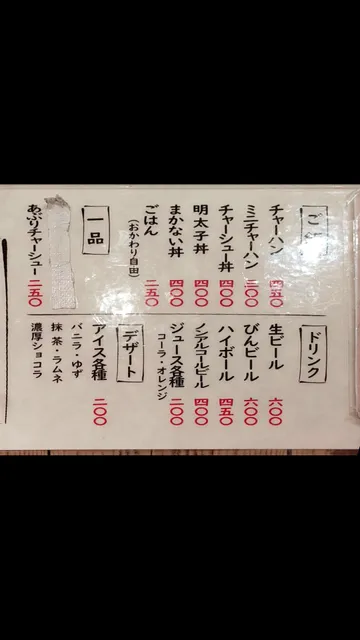 ご
チャーハン 四五〇
ミニチャーハン 三〇〇
チャーシュー丼 四〇〇
明太子丼 四〇〇
まかない丼 四〇〇
ごはん 二五〇
(おかわり自由)
一品
あぶりチャーシュー 二五〇
ドリンク
生ビール 六〇〇
びんビール 六〇〇
ハイボール 四五〇
ノンアルコールビール 四〇〇
ジュース各種 二〇〇
コーラ・オレンジ
デザート
アイス各種 二〇〇
バニラ・ゆず
抹茶・ラムネ
濃厚ショコラ